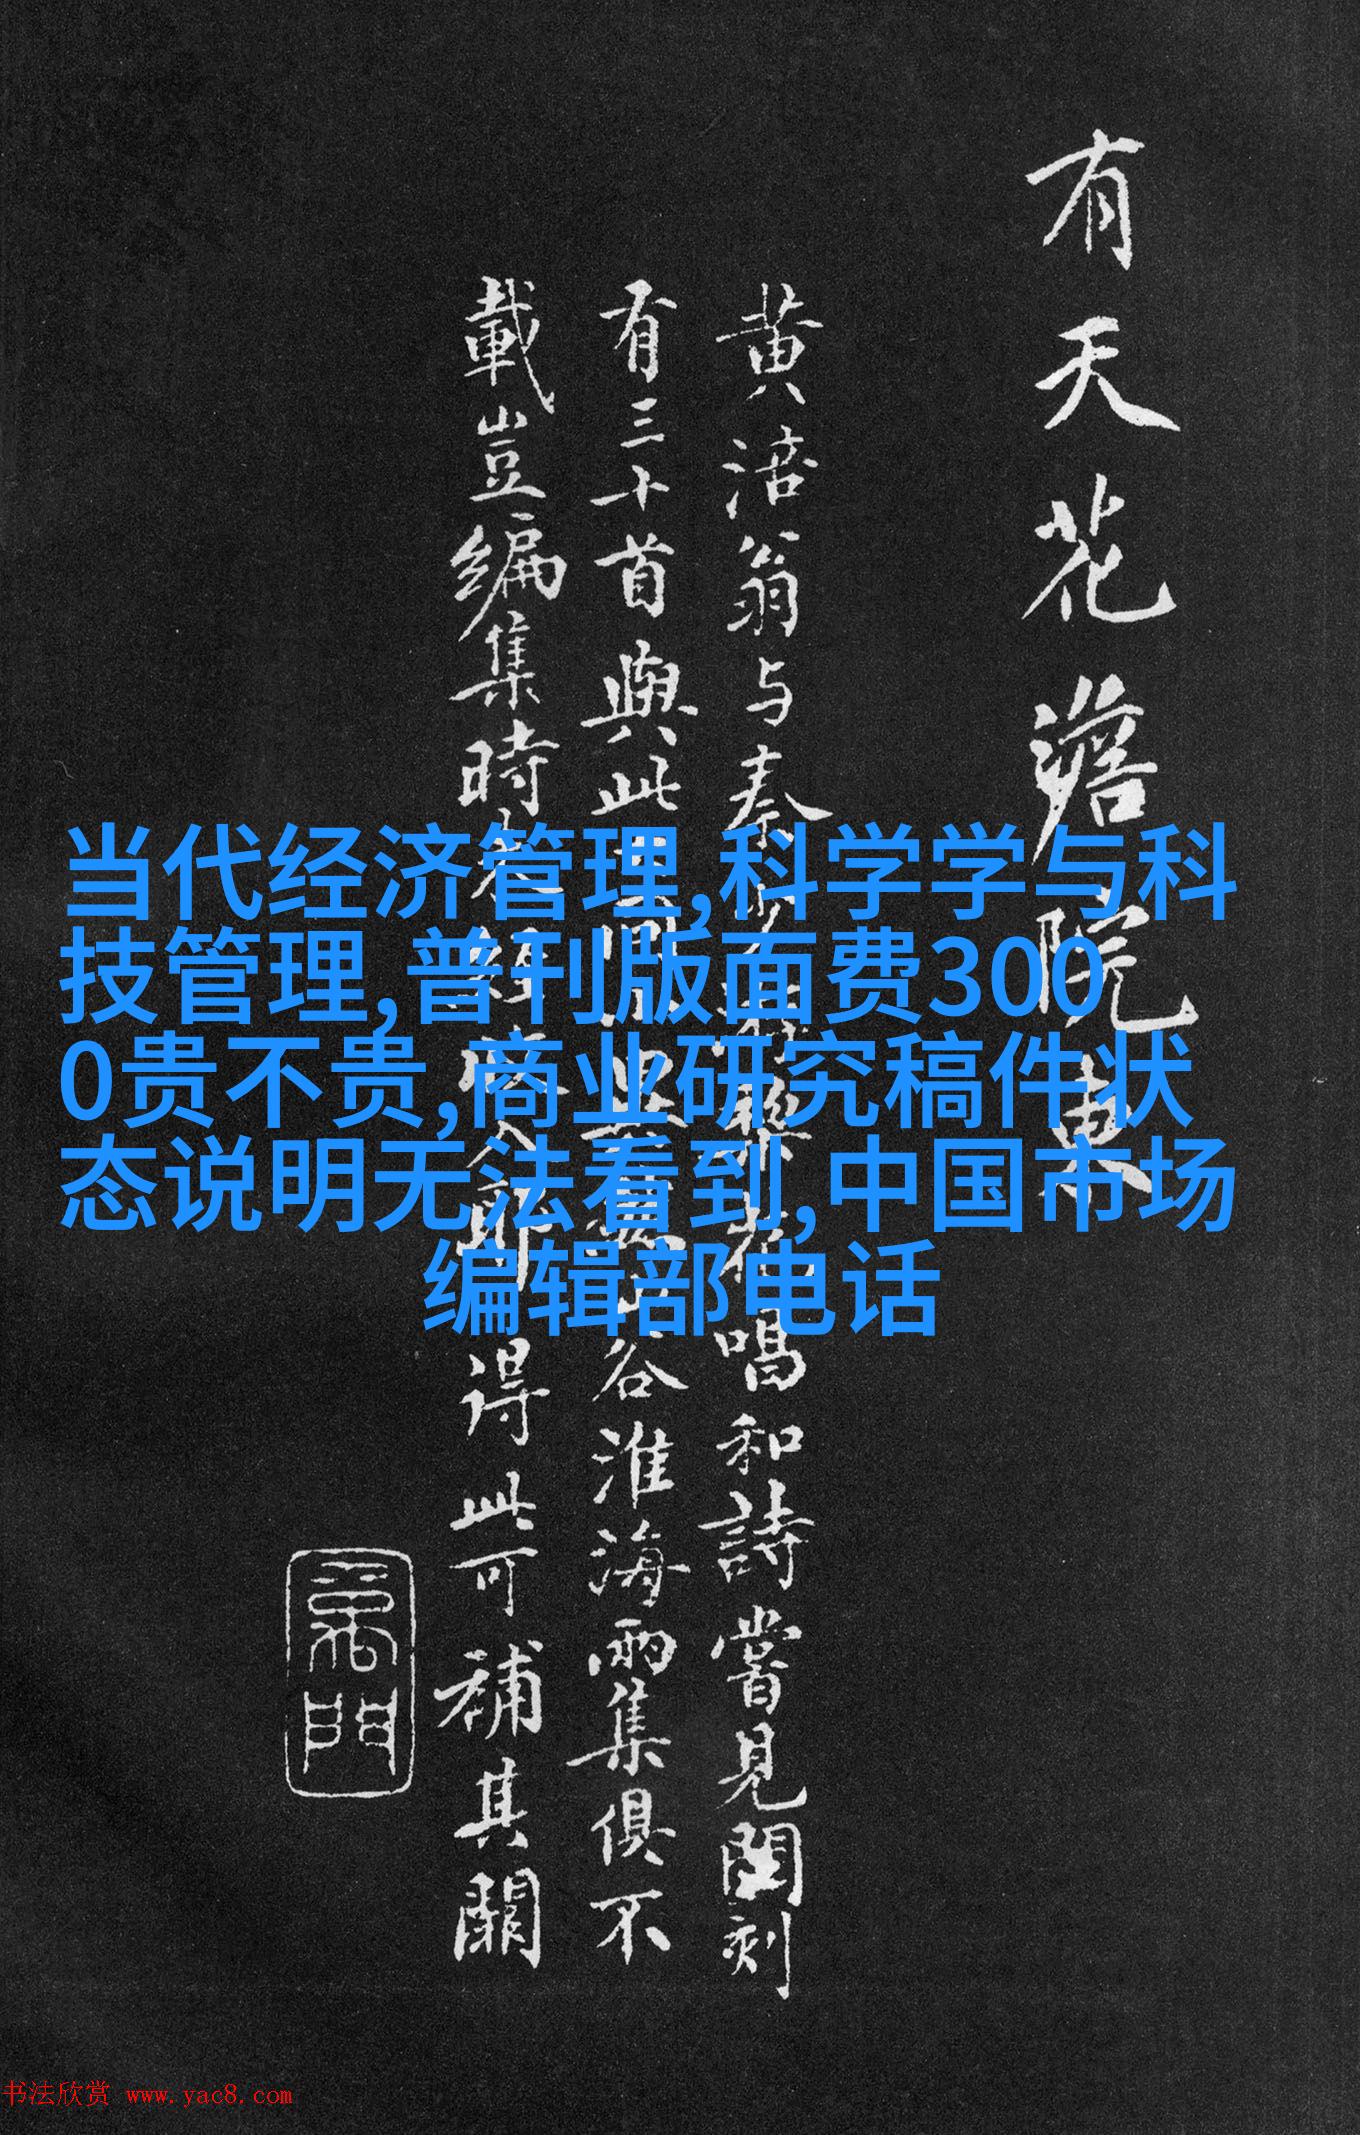 有天花澹院東
黄涪翁与秦少
唱和詩嘗見閣刻
有三十首與此
谷淮海兩集俱不
載豈編集時
得此可補其闕
当代经济管理,科学学与科
技管理,普刊版面费300
0贵不贵,商业研究稿件状
态说明无法看到,中国市场
编辑部电话
书法欣赏 www.yac8.com